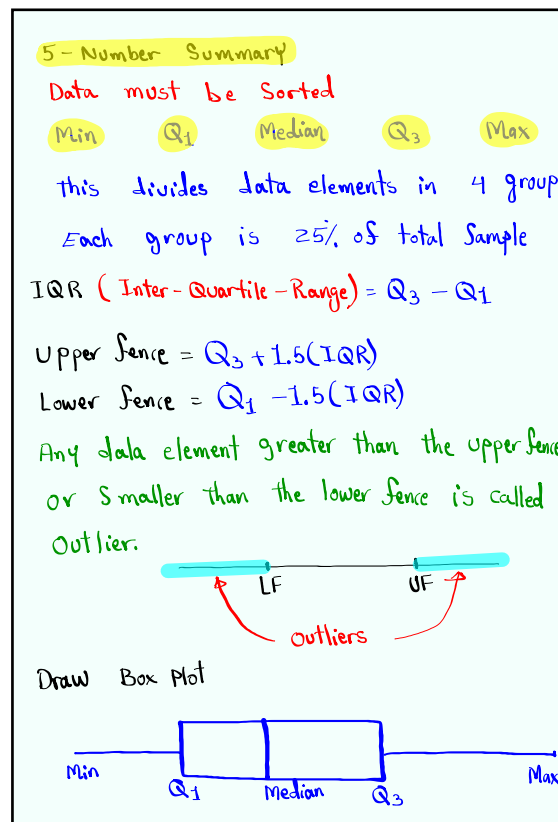 5-Number Summary
Data must be Sorted
Min Q1 Median Q3 Max
This divides data elements in 4 group
Each group is 25% of total Sample
IQR (Inter-Quartile-Range) = Q3 - Q1
Upper fence = Q3 + 1.5(IQR)
Lower fence = Q1 - 1.5(IQR)
Any data element greater than the upper fence
or Smaller than the lower fence is called
Outlier.
LF UF
outliers
Draw Box Plot
Min Q1 Median Q3 Max